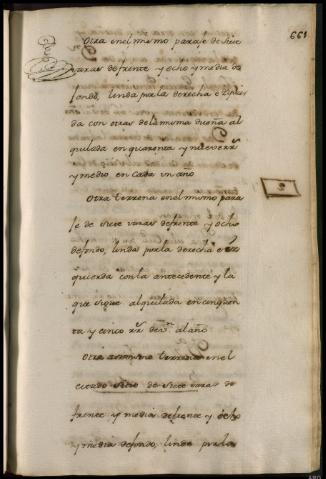 661
Otra en el mismo paraje de siete
varas de frente y ocho y media de
fondo, linda por la derecha e izquier
da con otras dela misma dueña al
quilada en quarenta y nueve rr.^s
y medio en cada un año
Otra terrena en el mismo para
je de siete varas de frente y ocho
de fondo, linda por la derecha e iz
quierda con la antecedente y la
que sigue alquilada en cinquen
ta y cinco rr.^s de v.^n al año
Otra terrena en el
citado sitio de siete varas de
frente y media de frente y ocho
y media de fondo, linda por la